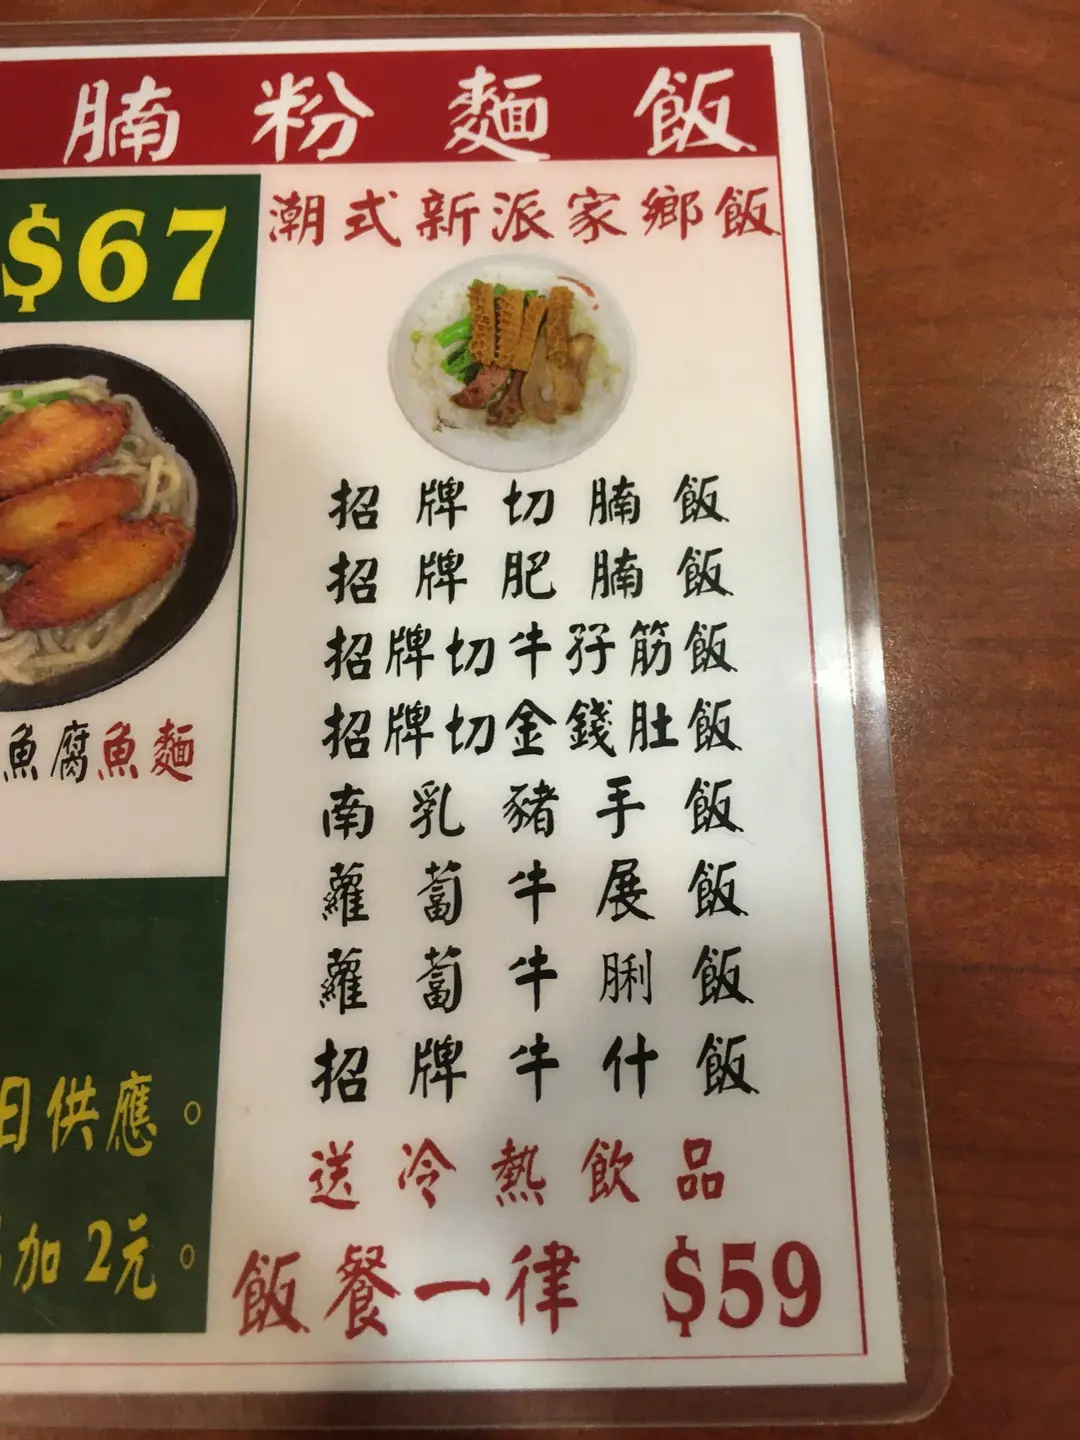 腩粉麵飯
$67
魚腐魚麵
日供應。
加2元。
潮式新派家鄉飯
招牌切腩飯
招牌肥腩飯
招牌切牛孖筋飯
招牌切金錢肚飯
南乳豬手飯
蘿蔔牛展飯
蘿蔔牛脷飯
招牌牛什飯
送冷熱飲品
飯餐一律 $59